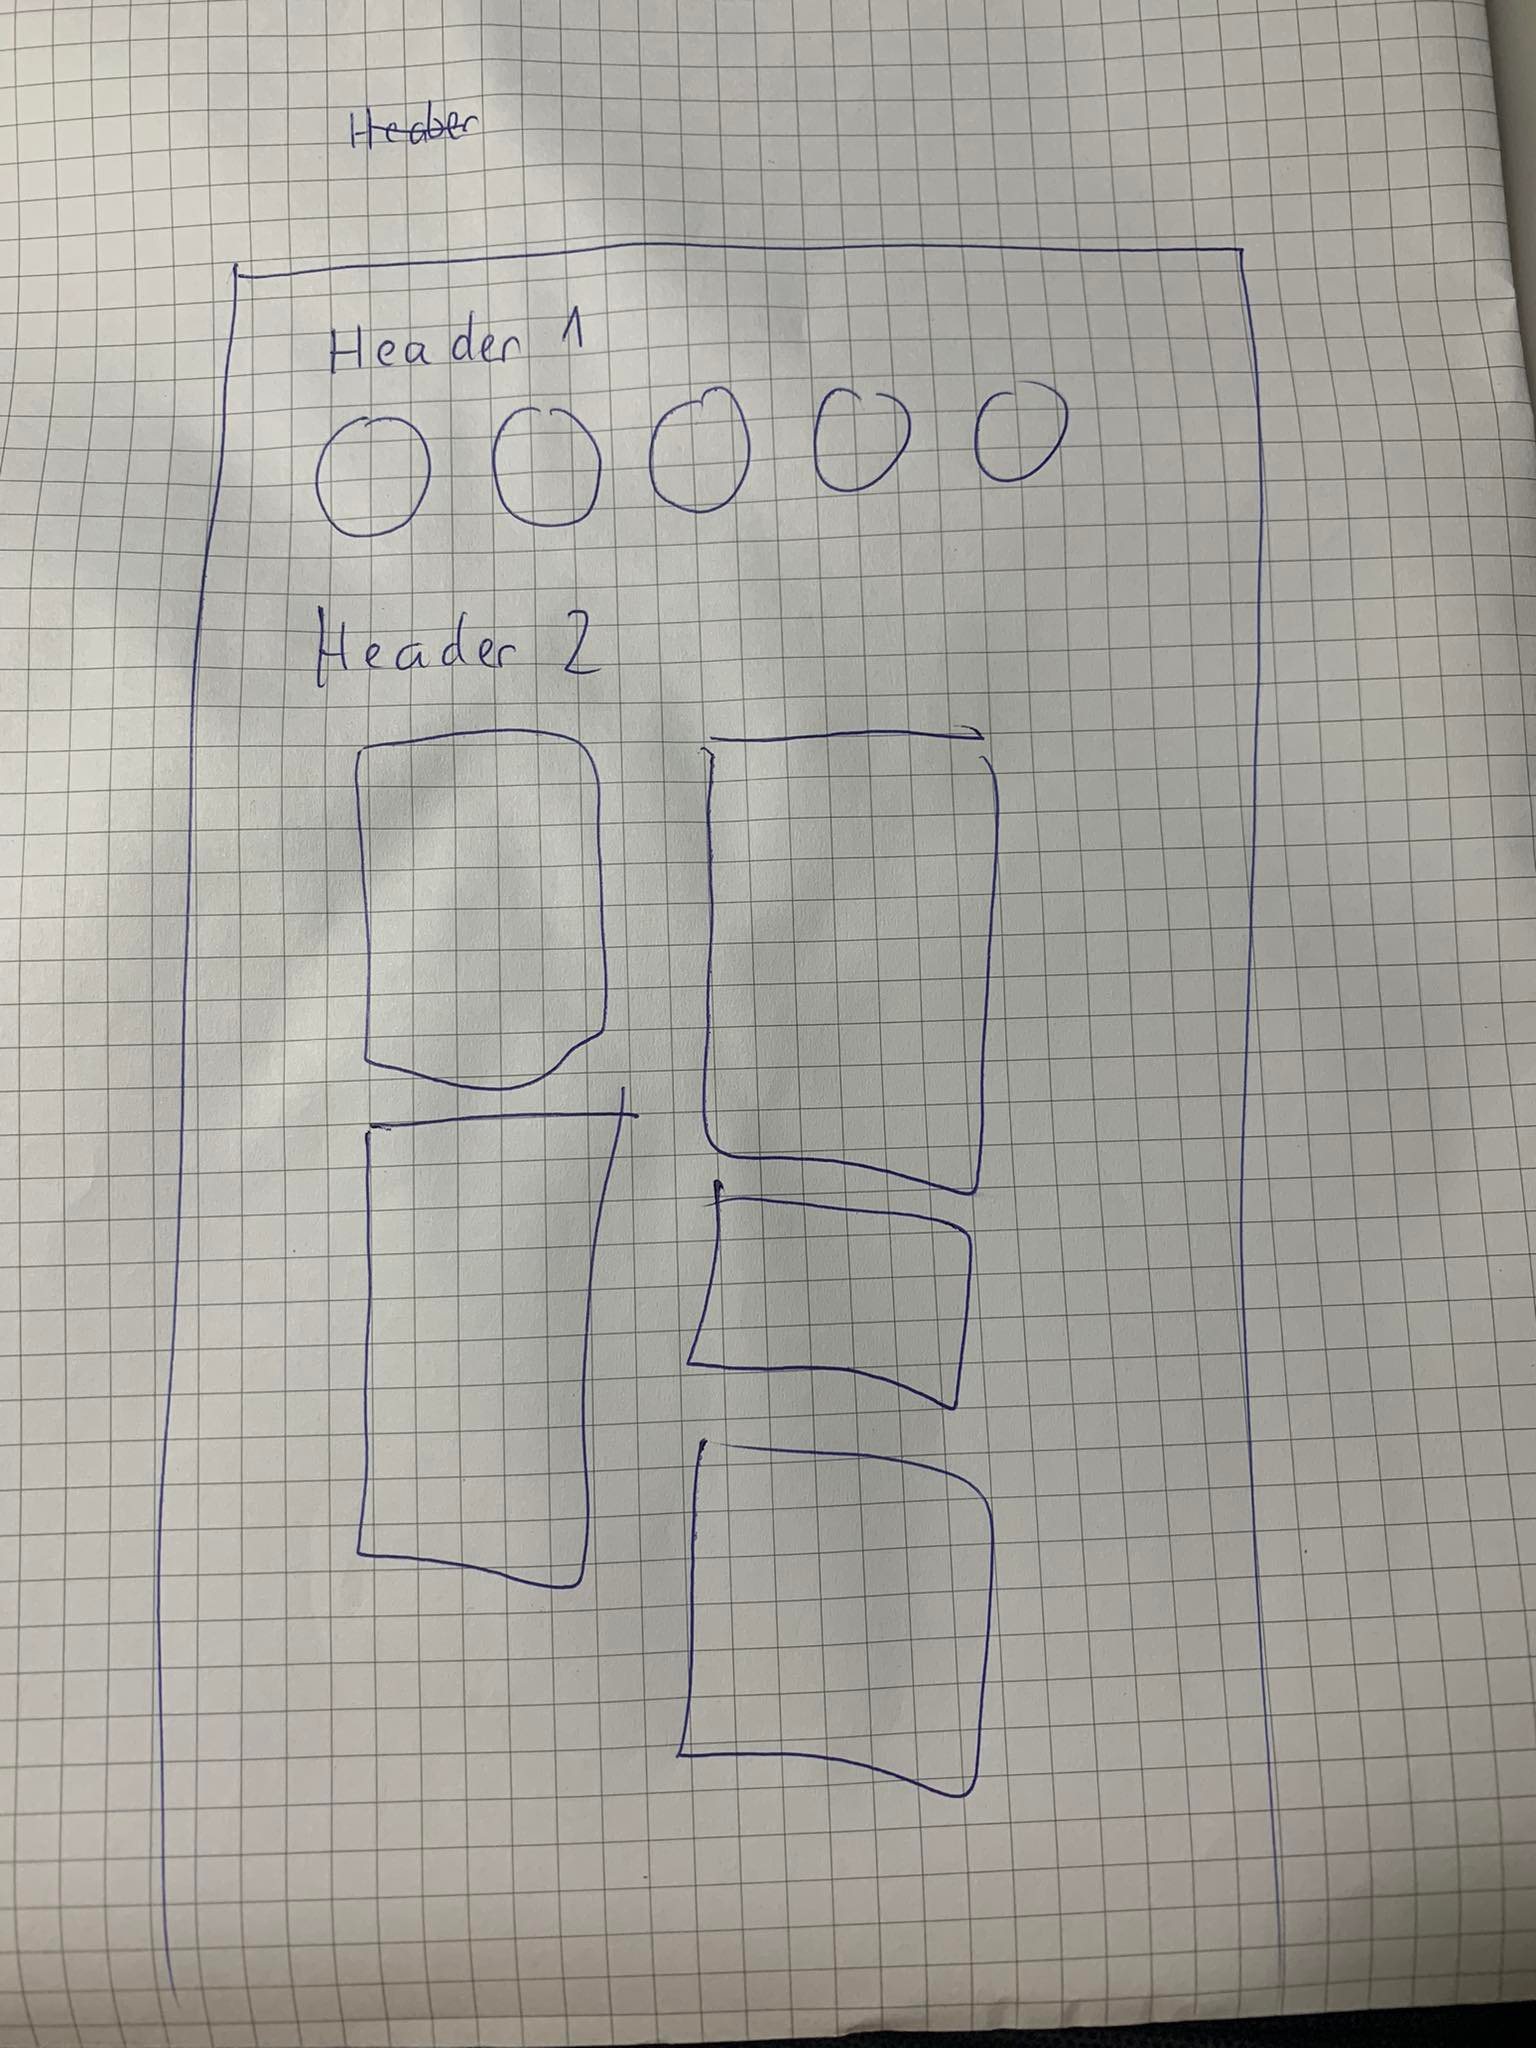 Header
Header 1
Header 2